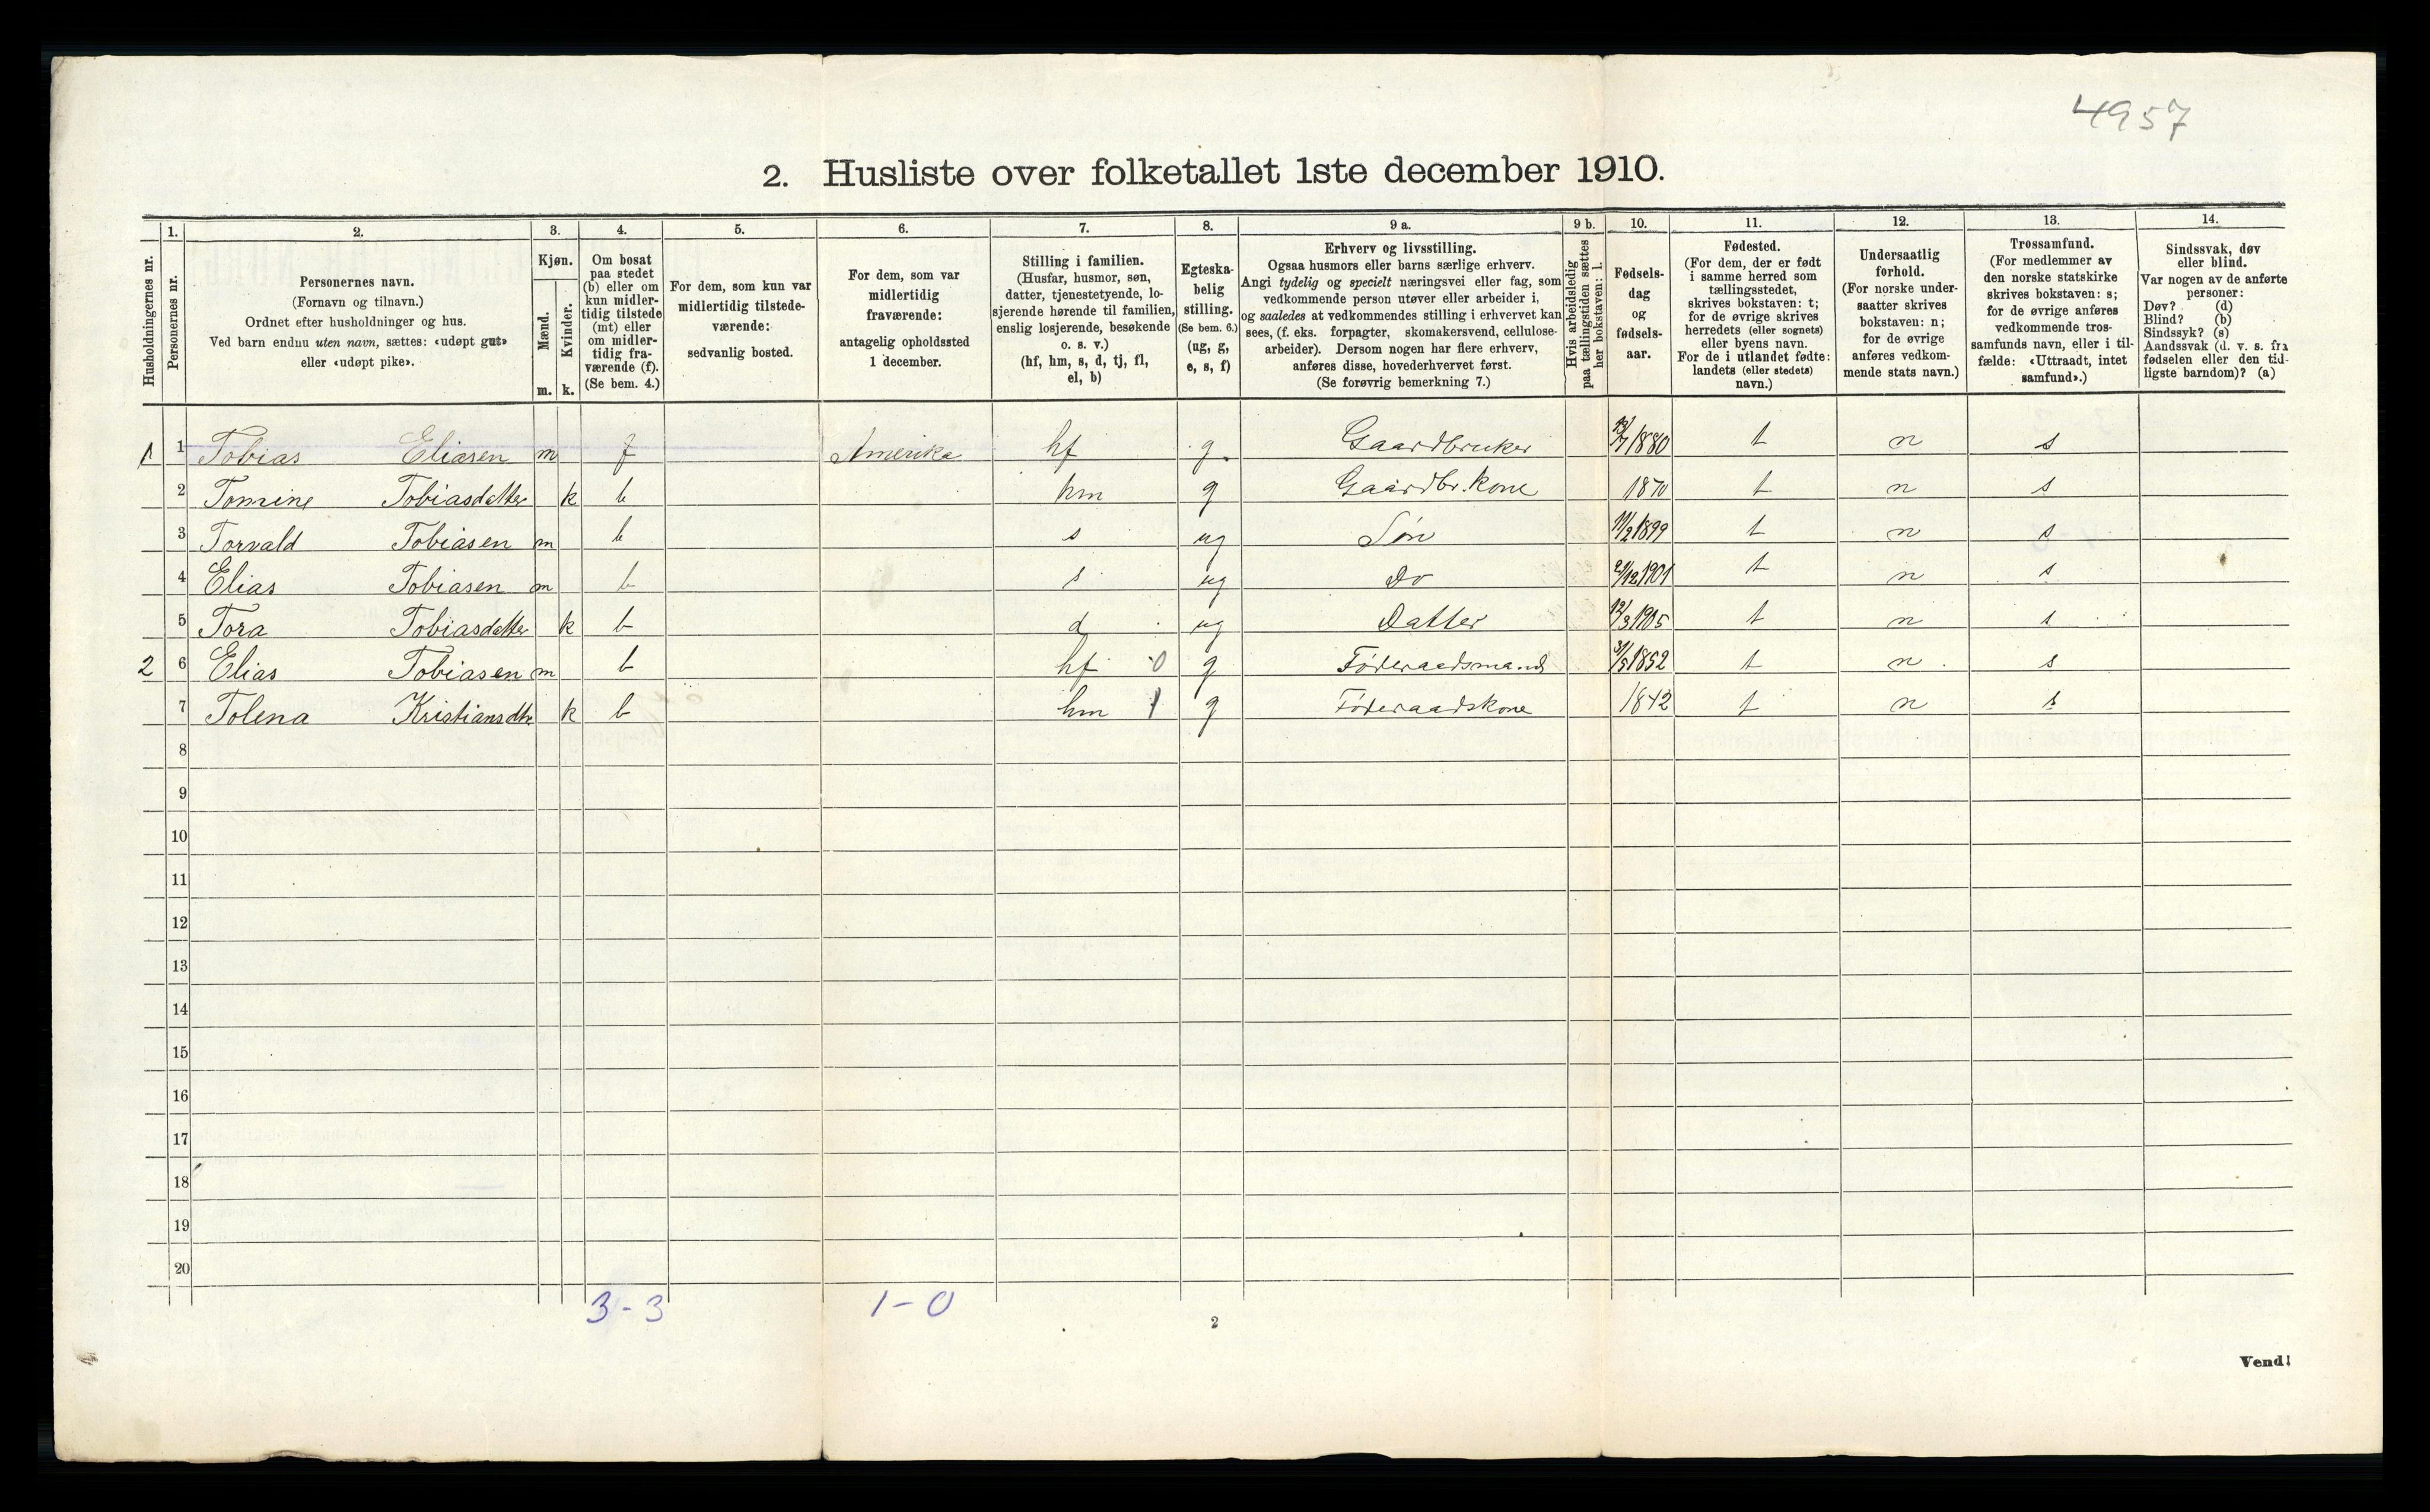 4957
2. Husliste over folketallet 1ste december 1910.
Husholdningernes nr.
1.
Personernes nr.
2.
Personernes navn.
(Fornavn og tilnavn.)
Ordnet efter husholdninger og hus.
Ved barn endnu uten navn, sættes: «udøpt gut»
eller «udøpt pike».
3.
Kjøn.
Mænd.
m.
Kvinder.
k.
4.
Om bosat
paa stedet
(b) eller om
kun midler-
tidig tilstede
(mt) eller
om midler-
tidig fra-
værende (f).
(Se bem. 4.)
5.
For dem, som kun var
midlertidig tilstede-
værende:
sedvanlig bosted.
6.
For dem, som var
midlertidig
fraværende:
antagelig opholdssted
1 december.
7.
Stilling i familien.
(Husfar, husmor, søn,
datter, tjenestetyende, lo-
sjerende hørende til familien,
enslig losjerende, besøkende
o. s. v.)
(hf, hm, s, d, tj, fl,
el, b)
8.
Egteska-
belig
stilling.
(Se bem. 6.)
(ug, g,
e, s, f)
9 a.
Erhverv og livsstilling.
Ogsaa husmors eller barns særlige erhverv.
Angi tydelig og specielt næringsvei eller fag, som
vedkommende person utøver eller arbeider i,
og saaledes at vedkommendes stilling i erhvervet kan
sees, (f. eks. forpagter, skomakersvend, cellulose-
arbeider). Dersom nogen har flere erhverv,
anføres disse, hovederhvervet først.
(Se forøvrig bemerkning 7.)
9 b.
Hvis arbeidsledig
paa tællingstiden sættes
her bokstaven: l.
10.
Fødsels-
dag
og
fødsels-
aar.
11.
Fødested.
(For dem, der er født
i samme herred som
tællingsstedet,
skrives bokstaven: t;
for de øvrige skrives
herredets (eller sognets)
eller byens navn.
For de i utlandet fødte:
landets (eller stedets)
navn.)
12.
Undersaatlig
forhold.
(For norske under-
saatter skrives
bokstaven: n;
for de øvrige
anføres vedkom-
mende stats navn.)
13.
Trossamfund.
(For medlemmer av
den norske statskirke
skrives bokstaven: s;
for de øvrige anføres
vedkommende tros-
samfunds navn, eller i til-
fælde: «Uttraadt, intet
samfund».)
14.
Sindssvak, døv
eller blind.
Var nogen av de anførte
personer:
Døv? (d)
Blind? (b)
Sindssyk? (s)
Aandssvak (d. v. s. fra
fødselen eller den tid-
ligste barndom)? (a)
1 1 Tobias Eliasen m f Amerika hf g. Gaardbruker 1880 t n s
2 Tomine Tobiasdatter k b hm g Gaardbr. kone 1870 t n s
3 Torvald Tobiasen m b s ug Søn 11/2 1899 t n s
4 Elias Tobiasen m b s ug Do 21/12 1901 t n s
5 Tora Tobiasdatter k b d ug Datter 12/3 1905 t n s
2 6 Elias Tobiasen m b hf 0 g Føderaadsmand 31/5 1852 t n s
7 Tolena Kristiansdtr k b hm 1 g Føderaadskone 1842 t n s
8
9
10
11
12
13
14
15
16
17
18
19
20
3-3 1-0
2
Vend!